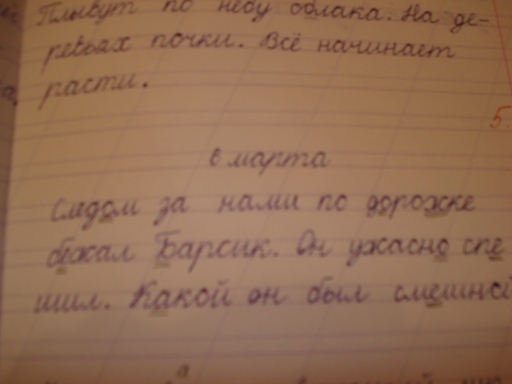 Плывут по небу облака. На де-
ревьях почки. Всё начинает
расти.
5.
6 марта
Следом за нами по дорожке
бежал Барсик. Он ужасно спе
шил. Какой он был смешной